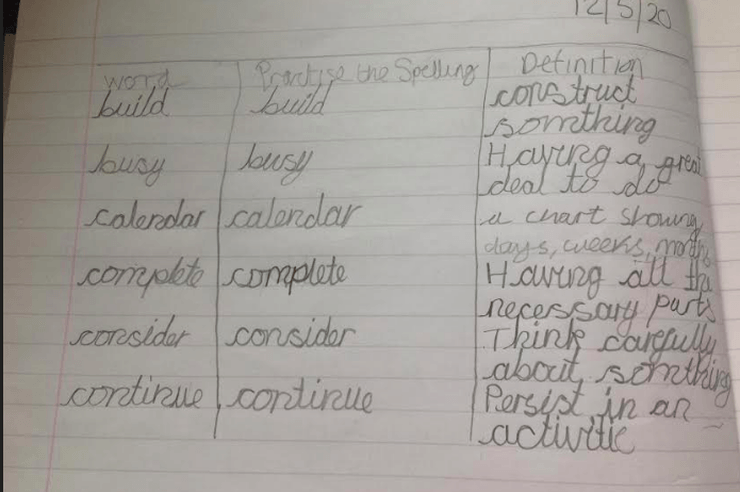 12/5/20
word Practise the Spelling Definition
build build construct
somthing
busy busy Having a great
deal to do
calendar calendar a chart showing
days, weeks, months
complete complete Having all the
necessary parts
consider consider Think carefully
about somthing
continue continue Persist in an
activitie